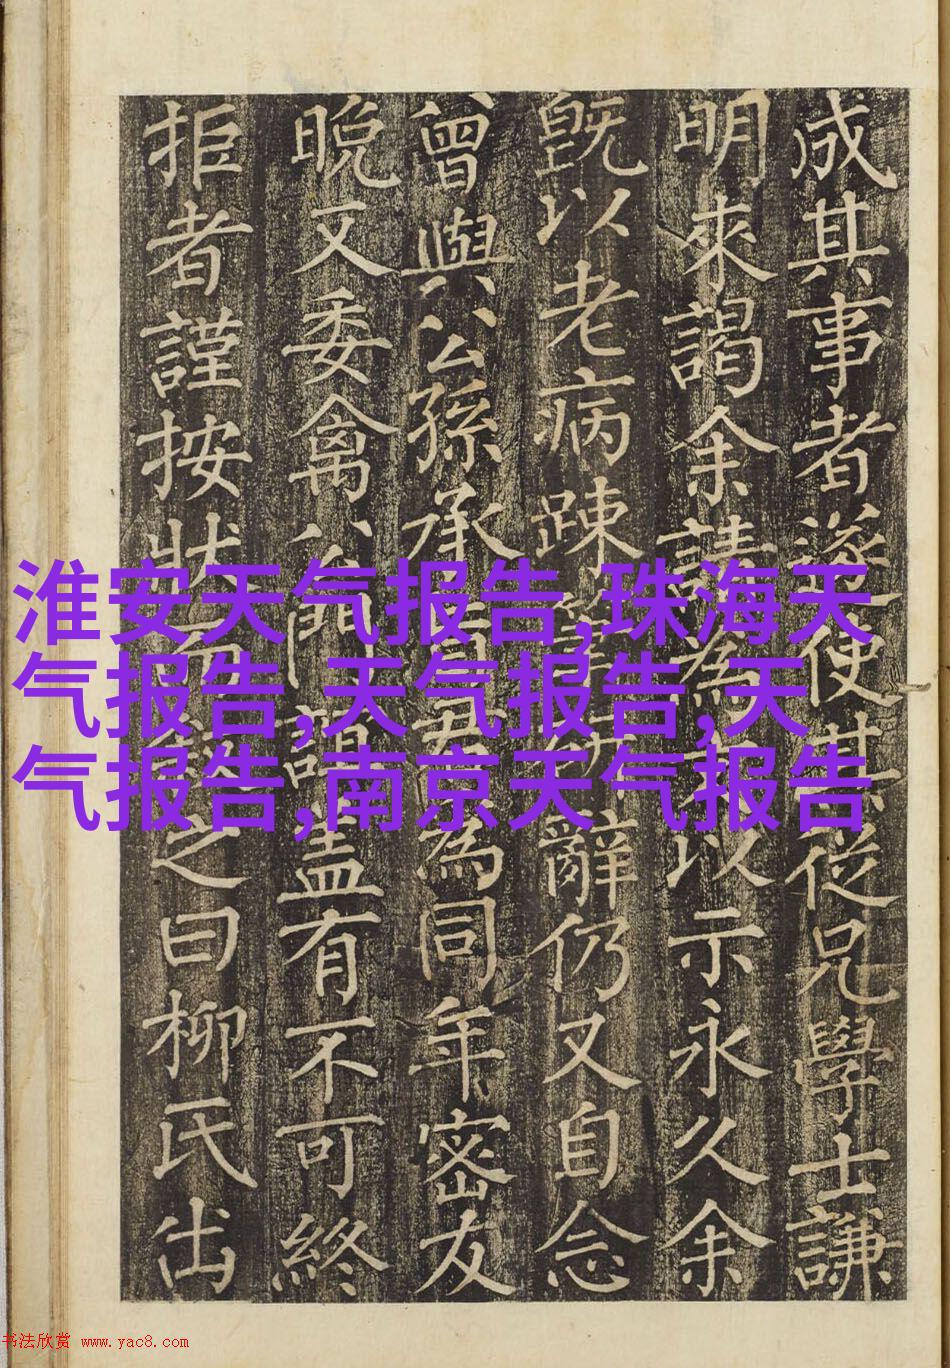 成其事者遂使其從兄學士謙
明來謁余請為以示永久余
既以老病踈辭仍又自念
曾與公孫承旨君為同年密友
晚又委禽公門誼盖有不可終
拒者謹按狀之曰柳氏出
淮安天气报告,珠海天
气报告,天气报告,天
气报告,南京天气报告
书法欣赏 www.yac8.com